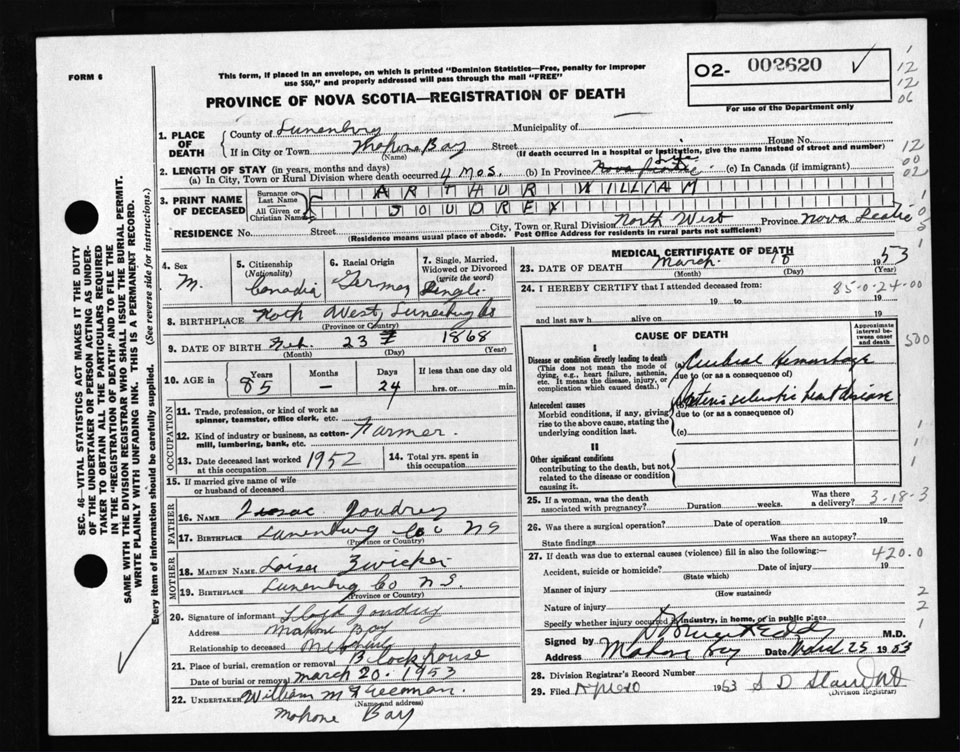 FORM 6
This form, if placed in an envelope, on which is printed "Dominion Statistics—Free, penalty for improper
use $50," and properly addressed will pass through the mail "FREE"
PROVINCE OF NOVA SCOTIA—REGISTRATION OF DEATH
O2- 002620 ✓
For use of the Department only
1
12
12
06
12
00
02
1. PLACE OF DEATH
County of Lunenburg Municipality of
If in City or Town Mahone Bay Street House No.
(Name) (If death occurred in a hospital or institution, give the name instead of street and number)
2. LENGTH OF STAY (in years, months and days)
(a) In City, Town or Rural Division where death occurred 4 mos. (b) In Province Nova Scotia (c) In Canada (if immigrant)
3. PRINT NAME OF DECEASED
Surname or Last Name ARTHUR WILLIAM
All Given or Christian Names JOUDREY
RESIDENCE No. Street City, Town or Rural Division North West Province Nova Scotia
(Residence means usual place of abode. Post Office Address for residents in rural parts not sufficient)
4. Sex
M.
5. Citizenship
(Nationality)
Canadia
6. Racial Origin
German
7. Single, Married,
Widowed or Divorced
(write the word)
Single
8. BIRTHPLACE North West, Lunenburg Co
(Province or Country)
9. DATE OF BIRTH Feb. 23 1868
(Month) (Day) (Year)
10. AGE in
Years 85
Months —
Days 24
If less than one day old
hrs. or min.
OCCUPATION
11. Trade, profession, or kind of work as
spinner, teamster, office clerk, etc.
12. Kind of industry or business, as cotten-
mill, lumbering, bank, etc.
Farmer.
13. Date deceased last worked
at this occupation 1952
14. Total yrs. spent in
this occupation
15. If married give name of wife
or husband of deceased
FATHER
16. NAME Isaac Joudrey
17. BIRTHPLACE Lunenburg Co NS
(Province or Country)
MOTHER
18. MAIDEN NAME Zwicker
19. BIRTHPLACE Lunenburg Co N.S.
(Province or Country)
20. Signature of informant Lloyd Joudrey
Address Mahone Bay
Relationship to deceased
21. Place of burial, cremation or removal Blockhouse
Date of burial or removal march 20. 1953
22. UNDERTAKER William M Freeman.
(Name and address)
Mahone Bay
MEDICAL CERTIFICATE OF DEATH
23. DATE OF DEATH March. 18 1953
(Month) (Day) (Year)
24. I HEREBY CERTIFY that I attended deceased from: 85-0-24-00
19 to 19
and last saw h alive on 19
CAUSE OF DEATH
Approximate
interval be-
tween onset
and death
500
I
Disease or condition directly leading to death
(This does not mean the mode of
dying, e.g., heart failure, asthenia,
etc. It means the disease, injury, or
complication which caused death.)
Cerebral Hemorrhage
due to (or as a consequence of)
Antecedent causes
Morbid conditions, if any, giving
rise to the above cause, stating the
underlying condition last.
(b) Arteriosclerotic heart disease
due to (or as a consequence of)
(c)
II
Other significant conditions
contributing to the death, but not
related to the disease or condition
causing it.
25. If a woman, was the death
associated with pregnancy? Duration weeks. Was there a delivery? 3-18-3
26. Was there a surgical operation? Date of operation 19
State findings Was there an autopsy?
27. If death was due to external causes (violence) fill in also the following:— 420.0
Accident, suicide or homicide? Date of injury 19
(State which)
Manner of injury 2
(How sustained)
Nature of injury 2
Specify whether injury occurred in industry, in home, or in public 1
Signed by M.D.
Address Mahone Bay Date March 25 1953
28. Division Registrar's Record Number
29. Filed 1953
(Division Registrar)
SEC. 46—VITAL STATISTICS ACT MAKES IT THE DUTY
OF THE UNDERTAKER OR PERSON ACTING AS UNDER-
TAKER TO OBTAIN ALL THE PARTICULARS REQUIRED
IN THE "REGISTRATION OF DEATH" AND TO FILE THE
SAME WITH THE DIVISION REGISTRAR WHO SHALL ISSUE THE BURIAL PERMIT.
WRITE PLAINLY WITH UNFADING INK. THIS IS A PERMANENT RECORD.
Every item of information should be carefully supplied. (See reverse side for instructions.)